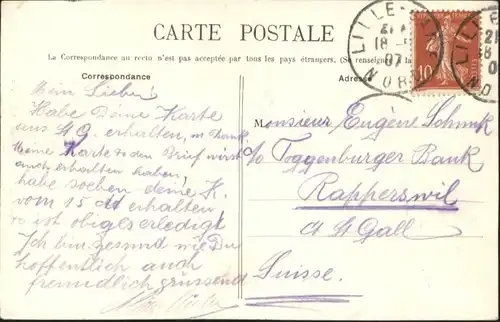 CARTE POSTALE
La Correspondance au recto n'est pas acceptée par tous les pays étrangers. (Se renseigner à la
Correspondance
Adresse
LILLE
21
18
07
NORD
10
LILLE
21
18
0
NO
Mein Lieber!
Habe Deine Karte
aus St G. erhalten, m Dank.
Meine Karte & den Brief wirst
auch erhalten haben,
habe soeben deine K.
vom 15 dt erhalten
so ist obiges erledigt
Ich bin gesund wie Du
hoffentlich auch
freundlich grüssend
Monsieur Eugène Schmuk
c/o Toggenburger Bank
Rapperswil
Ct St Gall
Suisse.